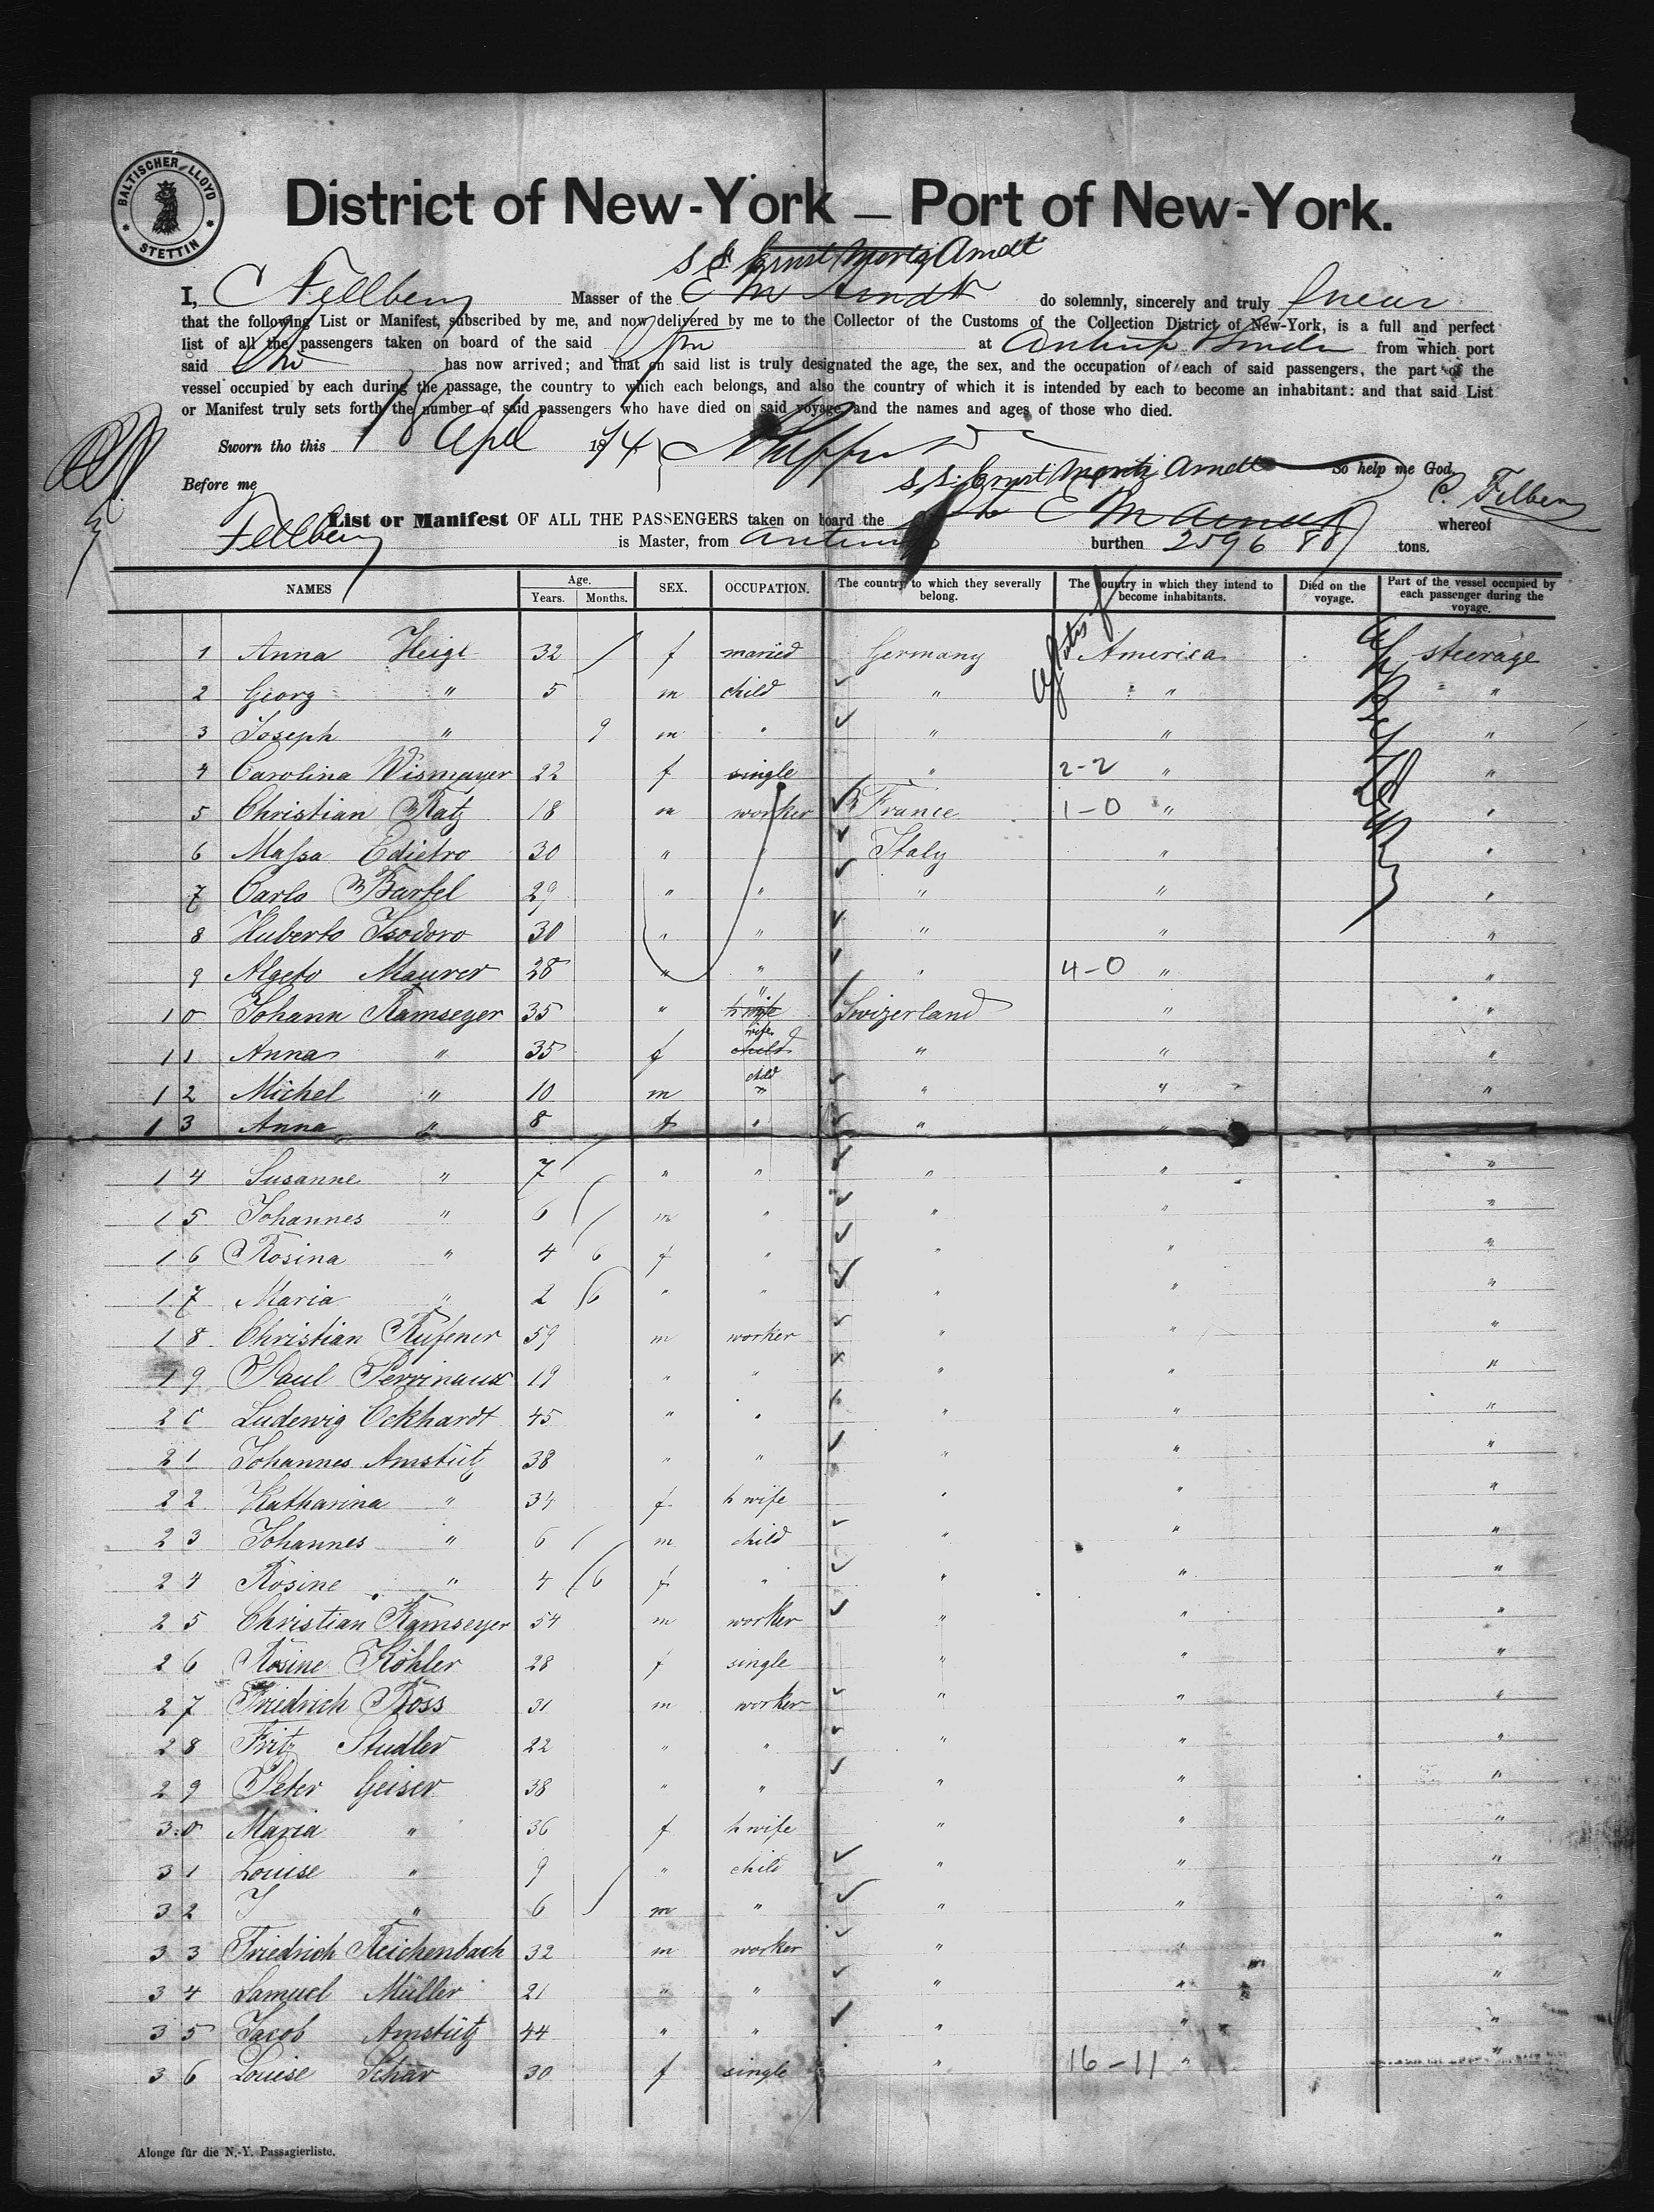 BALTISCHER LLOYD
STETTIN
District of New-York — Port of New-York.
S S Ernst Moritz Arndt
I, C Fellberg Masser of the E M Arndt do solemnly, sincerely and truly swear
that the following List or Manifest, subscribed by me, and now delivered by me to the Collector of the Customs of the Collection District of New-York, is a full and perfect
list of all the passengers taken on board of the said at Antwerp from which port
said has now arrived; and that on said list is truly designated the age, the sex, and the occupation of each of said passengers, the part of the
vessel occupied by each during the passage, the country to which each belongs, and also the country of which it is intended by each to become an inhabitant: and that said List
or Manifest truly sets forth the number of said passengers who have died on said voyage and the names and ages of those who died.
Sworn tho this 18 Apl 1874
So help me God.
Before me
S.S. Ernst Moritz Arndt
C. Felberg
List or Manifest OF ALL THE PASSENGERS taken on board the E M Arndt whereof
Fellberg is Master, from Antwerp burthen 2596 88 tons.
NAMES Age. Years. Months. SEX. OCCUPATION. The country to which they severally belong. The country in which they intend to become inhabitants. Died on the voyage. Part of the vessel occupied by each passenger during the voyage.
1 Anna Heigl 32 f maried Germany America steerage
2 Georg " 5 m child " " "
3 Joseph " 9 m " " " "
4 Carolina Wismayer 22 f single " 2-2 " "
5 Christian Ratz 18 m worker France 1-0 " "
6 Massa Edietro 30 " " Italy " "
7 Carlo Bartel 29 " " " " "
8 Huberto Isodoro 30 " " " " "
9 Algeto Maurer 28 " " " 4-0 " "
10 Johann Ramseyer 35 " h wife " Swizerland " "
11 Anna " 35 f child wife " " "
12 Michel " 10 m child " " " "
13 Anna " 8 f " " " "
14 Susanne " 7 " " " " "
15 Johannes " 6 m " " " "
16 Rosina " 4 6 f " " " "
17 Maria " 2 6 " " " " "
18 Christian Rufener 59 m worker " " "
19 Paul Perrinaux 19 " " " " "
20 Ludewig Eckhardt 45 " " " " "
21 Johannes Amstütz 38 " " " " "
22 Katharina " 34 f h wife " " "
23 Johannes " 6 m child " " "
24 Rosine " 4 6 f " " " "
25 Christian Ramseyer 54 m worker " " "
26 Rosine Köhler 28 f single " " "
27 Friedrich Ross 31 m worker " " "
28 Fritz Studler 22 " " " " "
29 Peter Geiser 38 " " " " "
30 Maria " 36 f h wife " " "
31 Louise " 9 " child " " "
32 J " 6 m " " " "
33 Friedrich Reichenbach 32 m worker " " "
34 Samuel Müller 21 " " " " "
35 Jacob Amstütz 44 " " " " "
36 Louise Schär 30 f single " 16-11 " "
Alonge für die N.-Y. Passagierliste.